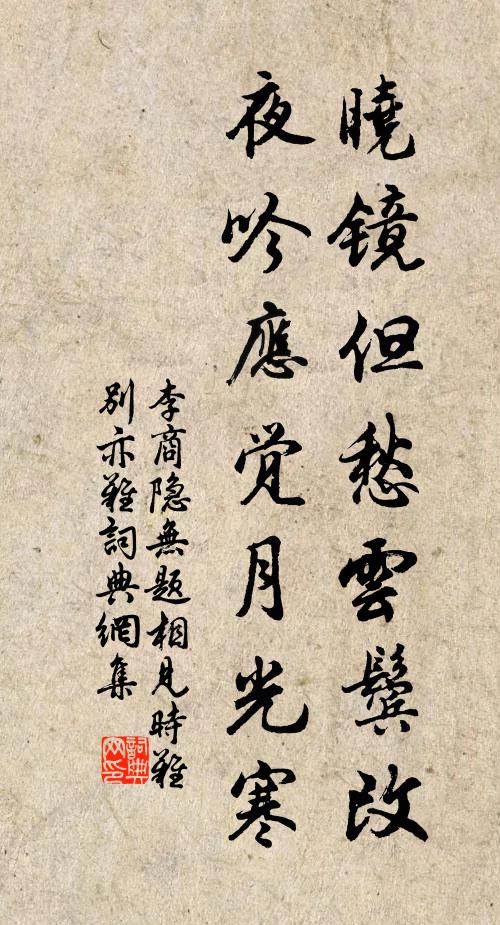 曉镜但愁雲鬓改
夜吟應觉月光寒
李商隐無题相见時難
别亦難詞典網集
詞典
网印